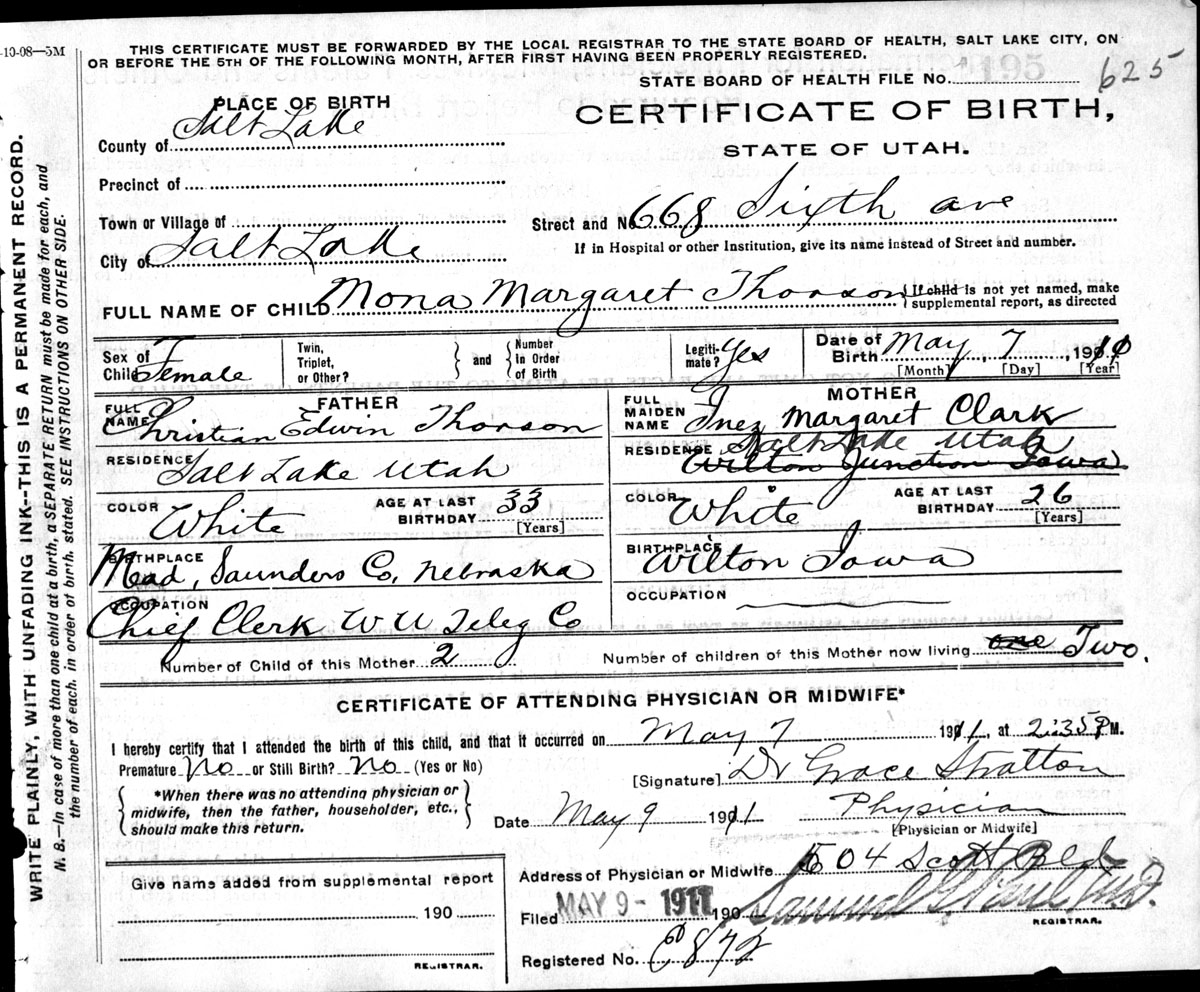 -10-08—5M
THIS CERTIFICATE MUST BE FORWARDED BY THE LOCAL REGISTRAR TO THE STATE BOARD OF HEALTH, SALT LAKE CITY, ON
OR BEFORE THE 5TH OF THE FOLLOWING MONTH, AFTER FIRST HAVING BEEN PROPERLY REGISTERED.
STATE BOARD OF HEALTH FILE No. 195 625
PLACE OF BIRTH
CERTIFICATE OF BIRTH,
STATE OF UTAH.
County of Salt Lake
Precinct of
Town or Village of
Street and No 668 Sixth ave
City of Salt Lake
If in Hospital or other Institution, give its name instead of Street and number.
FULL NAME OF CHILD Mona Margaret Thorson { If child is not yet named, make supplemental report, as directed
Sex of Child F Female
Twin, Triplet, or Other? } and { Number In Order of Birth
Legitimate? Yes
Date of Birth May, 7, 1910
[Month] [Day] [Year]
FATHER
FULL NAME Christian Edwin Thorson
RESIDENCE Salt Lake Utah
COLOR White AGE AT LAST BIRTHDAY 33 [Years]
BIRTHPLACE Mead, Saunders Co, Nebraska
OCCUPATION Chief Clerk W U Teleg Co
MOTHER
FULL MAIDEN NAME Inez Margaret Clark
RESIDENCE Salt Lake Utah
Wilton Junction Iowa
COLOR White AGE AT LAST BIRTHDAY 26 [Years]
BIRTHPLACE Wilton Iowa
OCCUPATION
Number of Child of this Mother 2 Number of children of this Mother now living one Two.
CERTIFICATE OF ATTENDING PHYSICIAN OR MIDWIFE*
I hereby certify that I attended the birth of this child, and that it occurred on May 7 1911, at 2:35 P M.
Premature No or Still Birth? No (Yes or No)
[Signature] Dr Grace Stratton
{ *When there was no attending physician or midwife, then the father, householder, etc., should make this return. }
Date May 9 1911 Physician
[Physician or Midwife]
Address of Physician or Midwife 504 Scott Bld
Give name added from supplemental report
190
REGISTRAR.
Filed MAY 9 - 1911 190 Samuel G. Paul M.D.
REGISTRAR.
Registered No. 872
WRITE PLAINLY, WITH UNFADING INK--THIS IS A PERMANENT RECORD.
N. B.—In case of more than one child at a birth, a SEPARATE RETURN must be made for each, and
the number of each, in order of birth, stated. SEE INSTRUCTIONS ON OTHER SIDE.